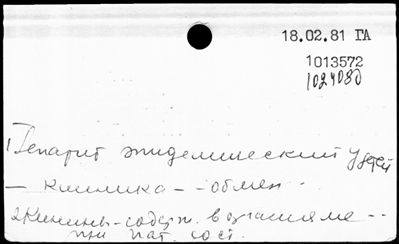 18.02.81 ГА
1013572
1024080
1) Гепатит эпидемический у детей
— клиника — - обмен - -
2) Кинины - содерж. в организме - -
при пат. сост.